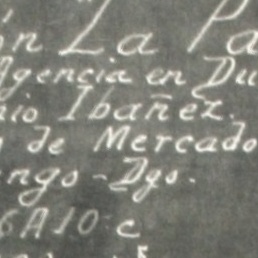 La Pa
gencia en Du
io Ibañez.
de Mercado
ngo - Dgo.
6A10 c